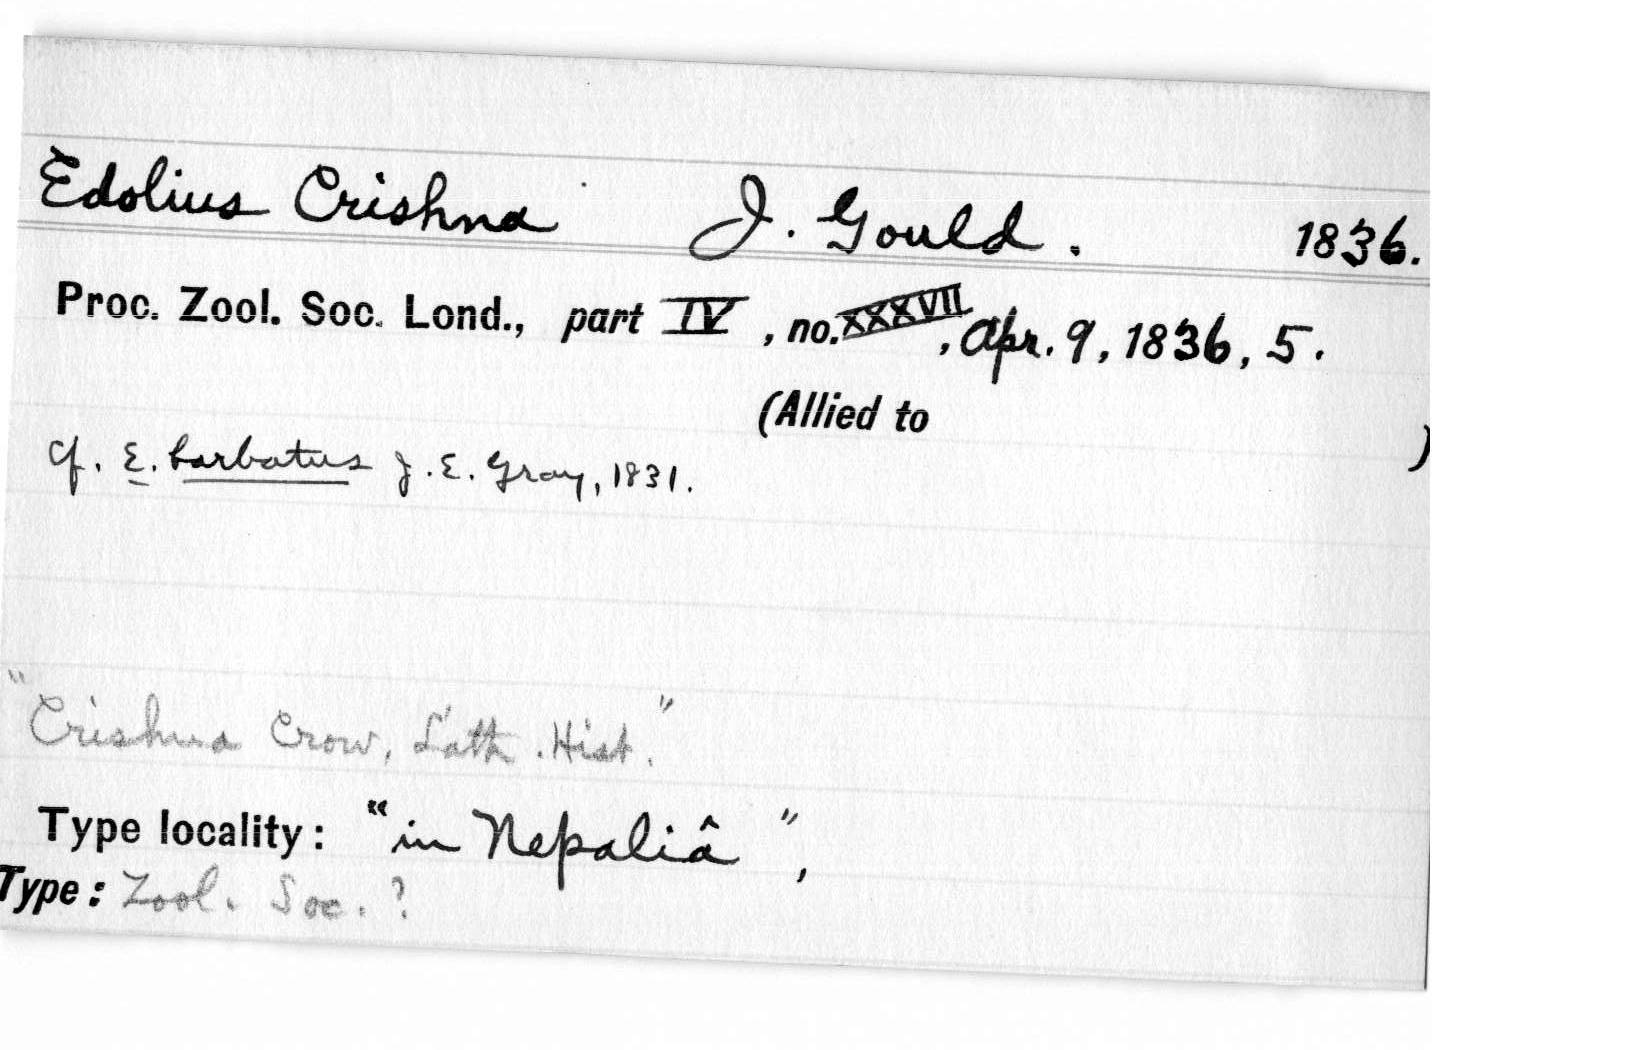 Edolius Crishna J. Gould. 1836.
Proc. Zool. Soc. Lond., part IV, no. XXXVII, Apr. 9, 1836, 5.
(Allied to )
cf. E. barbatus J. E. Gray, 1831.
"Crishna Crow, Lath. Hist."
Type locality: "in Nepaliâ",
Type: Zool. Soc. ?